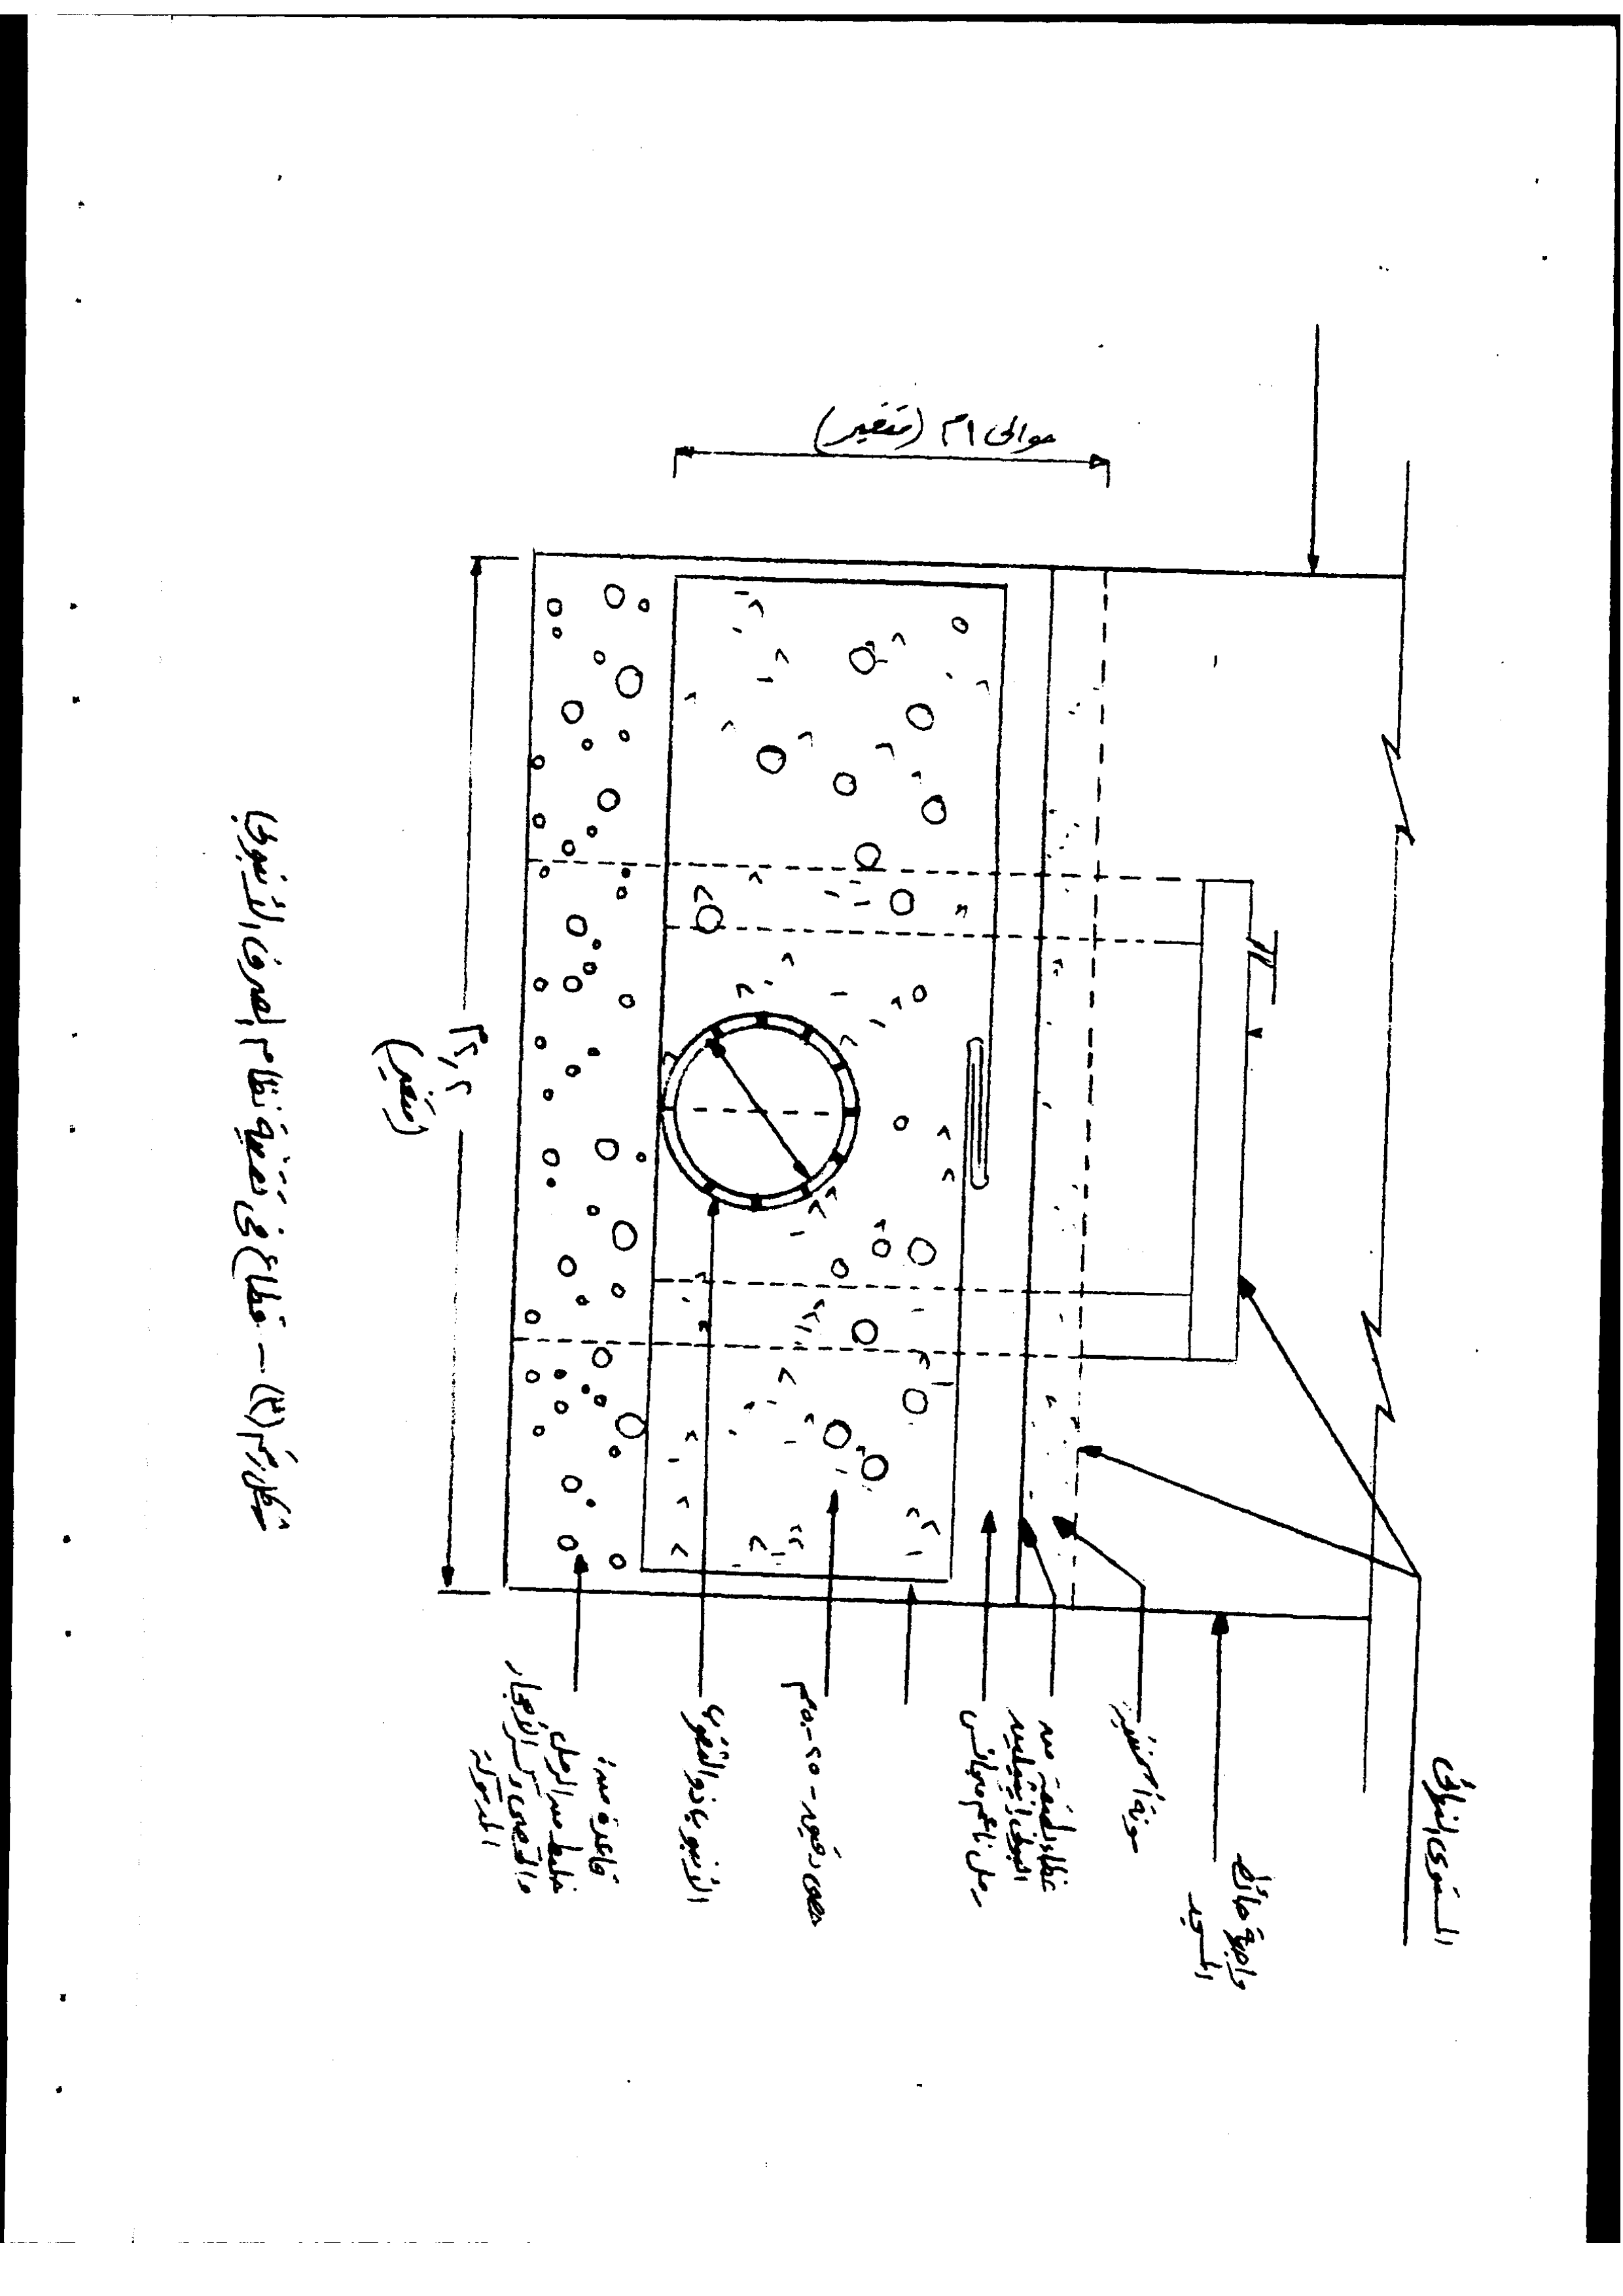 المستوى النهائي
واجهة حائط
المسجد
مونة أسمنتية
غطاء طبقة من
البولي إيثيلين
رمل ناعم متجانس
حصى رفيع ٢٥-٥٠م
الأنبوب ذو الثقوب
قاعدة من
خليط من الرمل
والحصى و كسر الأحجار
المدموكة
حوالى ١م (متغير)
٢,٢م
(متغير)
شكل رقم (٣) – قطاع في تغطية نظام الصرف الأنبوبي